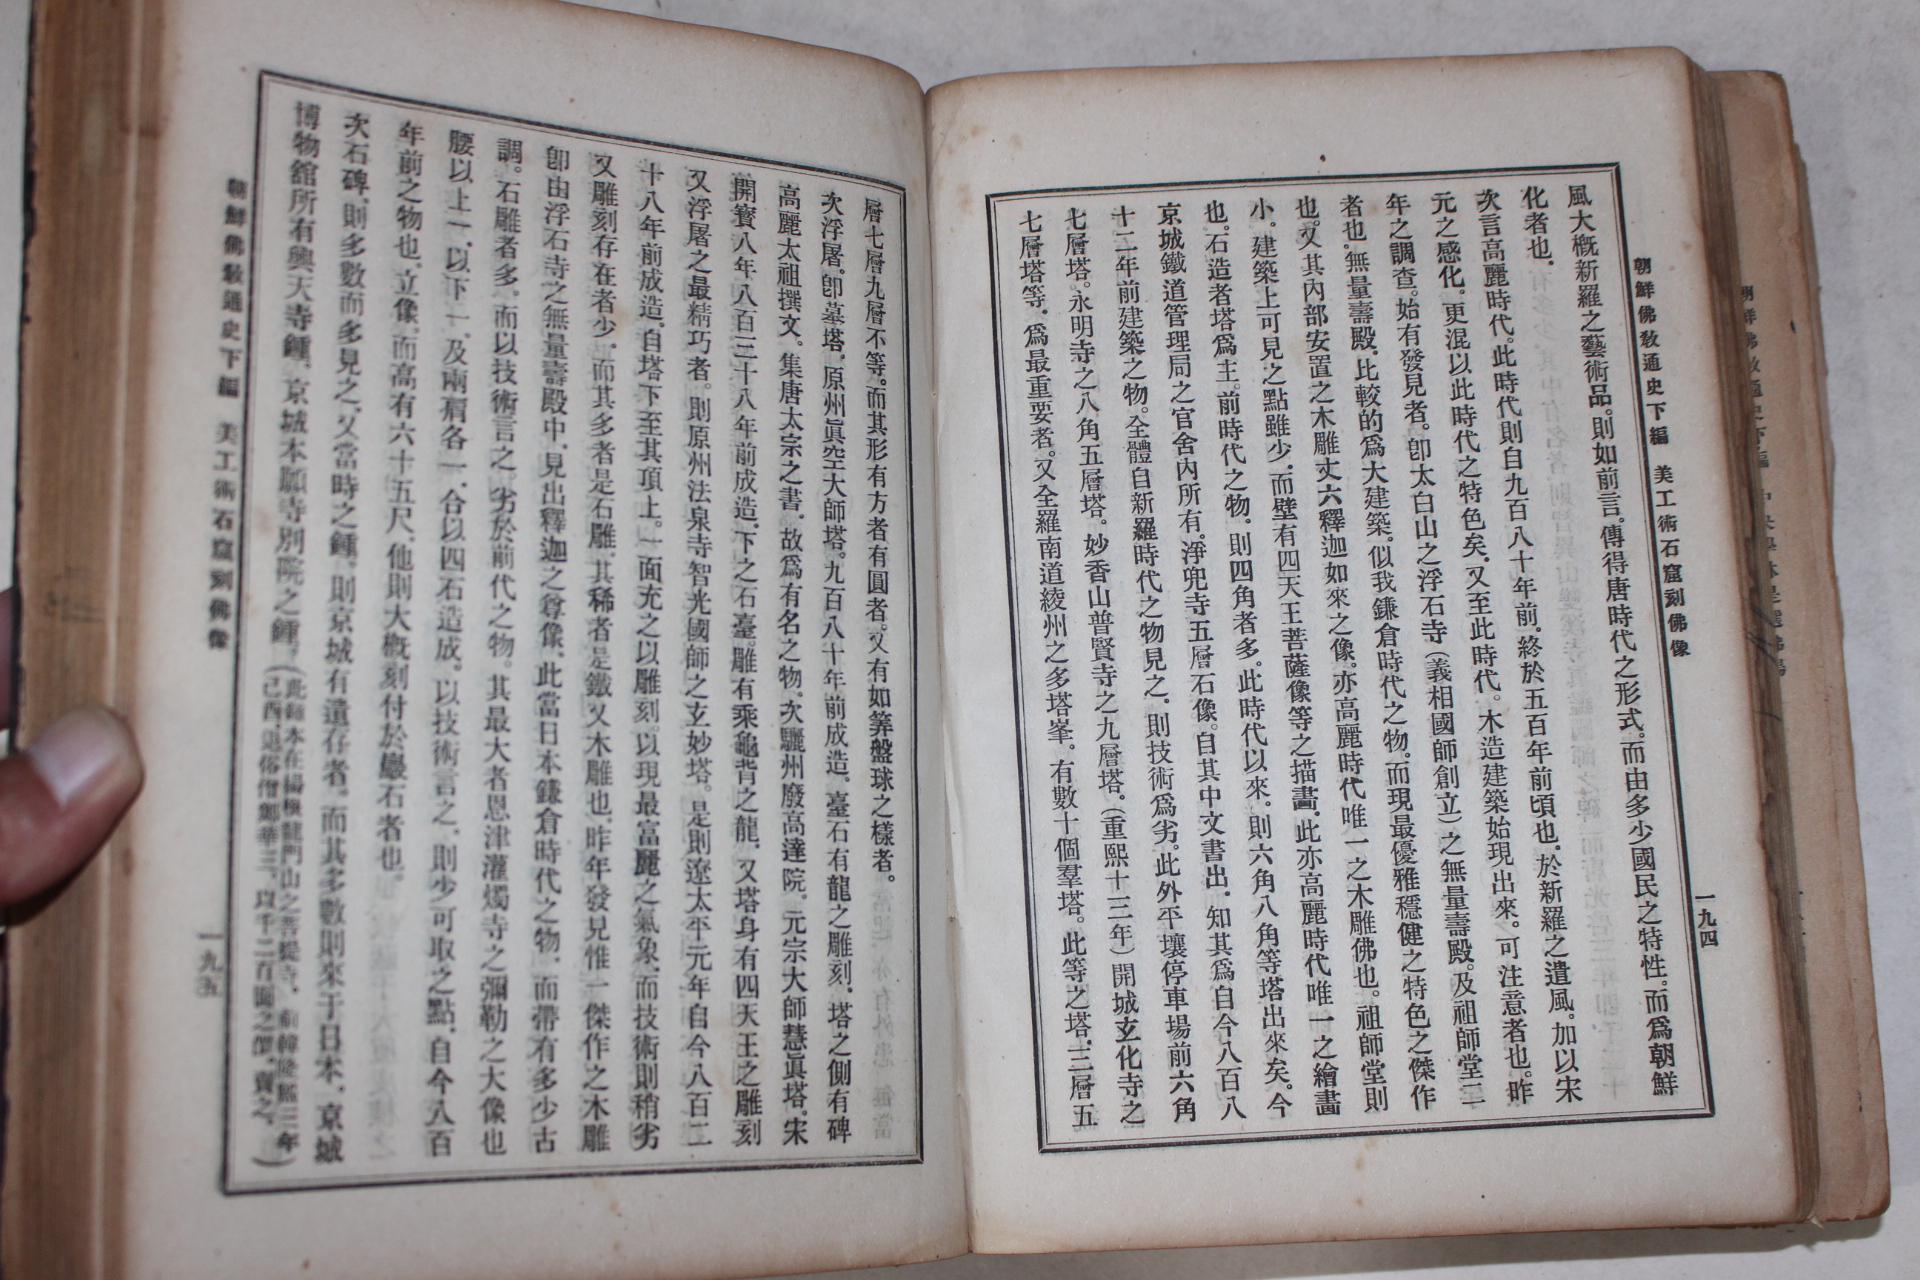 朝鮮佛敎通史下編　美工術石窟刻佛像
一九四
風大槪新羅之藝術品。則如前言。傳得唐時代之形式。而由多少國民之特性。而爲朝鮮
化者也。
次言高麗時代。此時代則自九百八十年前。終於五百年前頃也。於新羅之遺風。加以宋
元之感化。更混以此時代之特色矣。又至此時代。木造建築始現出來。可注意者也。昨
年之調查。始有發見者。卽太白山之浮石寺(義相國師創立)之無量壽殿。及祖師堂二
者也。無量壽殿。比較的爲大建築。似我鎌倉時代之物。而現最優雅穩健之特色之傑作
也。又其內部安置之木雕丈六釋迦如來之像。亦高麗時代唯一之木雕佛也。祖師堂則
小。建築上可見之點雖少。而壁有四天王菩薩像等之描畫。此亦高麗時代唯一之繪畫
也。石造者塔爲主。前時代之物。則四角者多。此時代以來。則六角八角等塔出來矣。今
京城鐵道管理局之官舍內所有。淨兜寺五層石像。自其中文書出。知其爲自今八百八
十二年前建築之物。全體自新羅時代之物見之。則技術爲劣。此外平壤停車場前六角
七層塔。永明寺之八角五層塔。妙香山普賢寺之九層塔。(重熙十三年)開城玄化寺之
七層塔等。爲最重要者。又全羅南道綾州之多塔峯。有數十個羣塔。此等之塔。三層五
層七層九層不等。而其形有方者有圓者。又有如筭盤球之樣者。
次浮屠。卽墓塔。原州眞空大師塔。九百八十年前成造。臺石有龍之雕刻。塔之側有碑
高麗太祖撰文。集唐太宗之書。故爲有名之物。次驪州廢高達院。元宗大師慧眞塔。宋
開寶八年八百三十八年前成造。下之石臺。雕有乘龜背之龍。又塔身有四天王之雕刻
又浮屠之最精巧者。則原州法泉寺智光國師之玄妙塔。是則遼太平元年自今八百二
十八年前成造。自塔下至其頂上。一面充之以雕刻。以現最富麗之氣象。而技術則稍劣
又雕刻存在者少。而其多者是石雕。其稀者是鐵又木雕也。昨年發見惟一傑作之木雕
卽由浮石寺之無量壽殿中。見出釋迦之尊像。此當日本鎌倉時代之物。而帶有多少古
調。石雕者多。而以技術言之。劣於前代之物。其最大者恩津灌燭寺之彌勒之大像也
腰以上一。以下一。及兩肩各一。合以四石造成。以技術言之。則少可取之點。自今八百
年前之物也。立像。而高有六十五尺。他則大槪刻付於巖石者也。
次石碑。則多數而多見之。又當時之鍾。則京城有遺存者。而其多數則來于日本。京城
博物舘所有興天寺鍾。京城本願寺別院之鍾。(此鍾本在楊根龍門山之菩提寺。前韓隆熙三年
(己酉)退俗僧鄭華三。以千二百圜之價。賣之。)
朝鮮佛敎通史下編　美工術石窟刻佛像
一九五